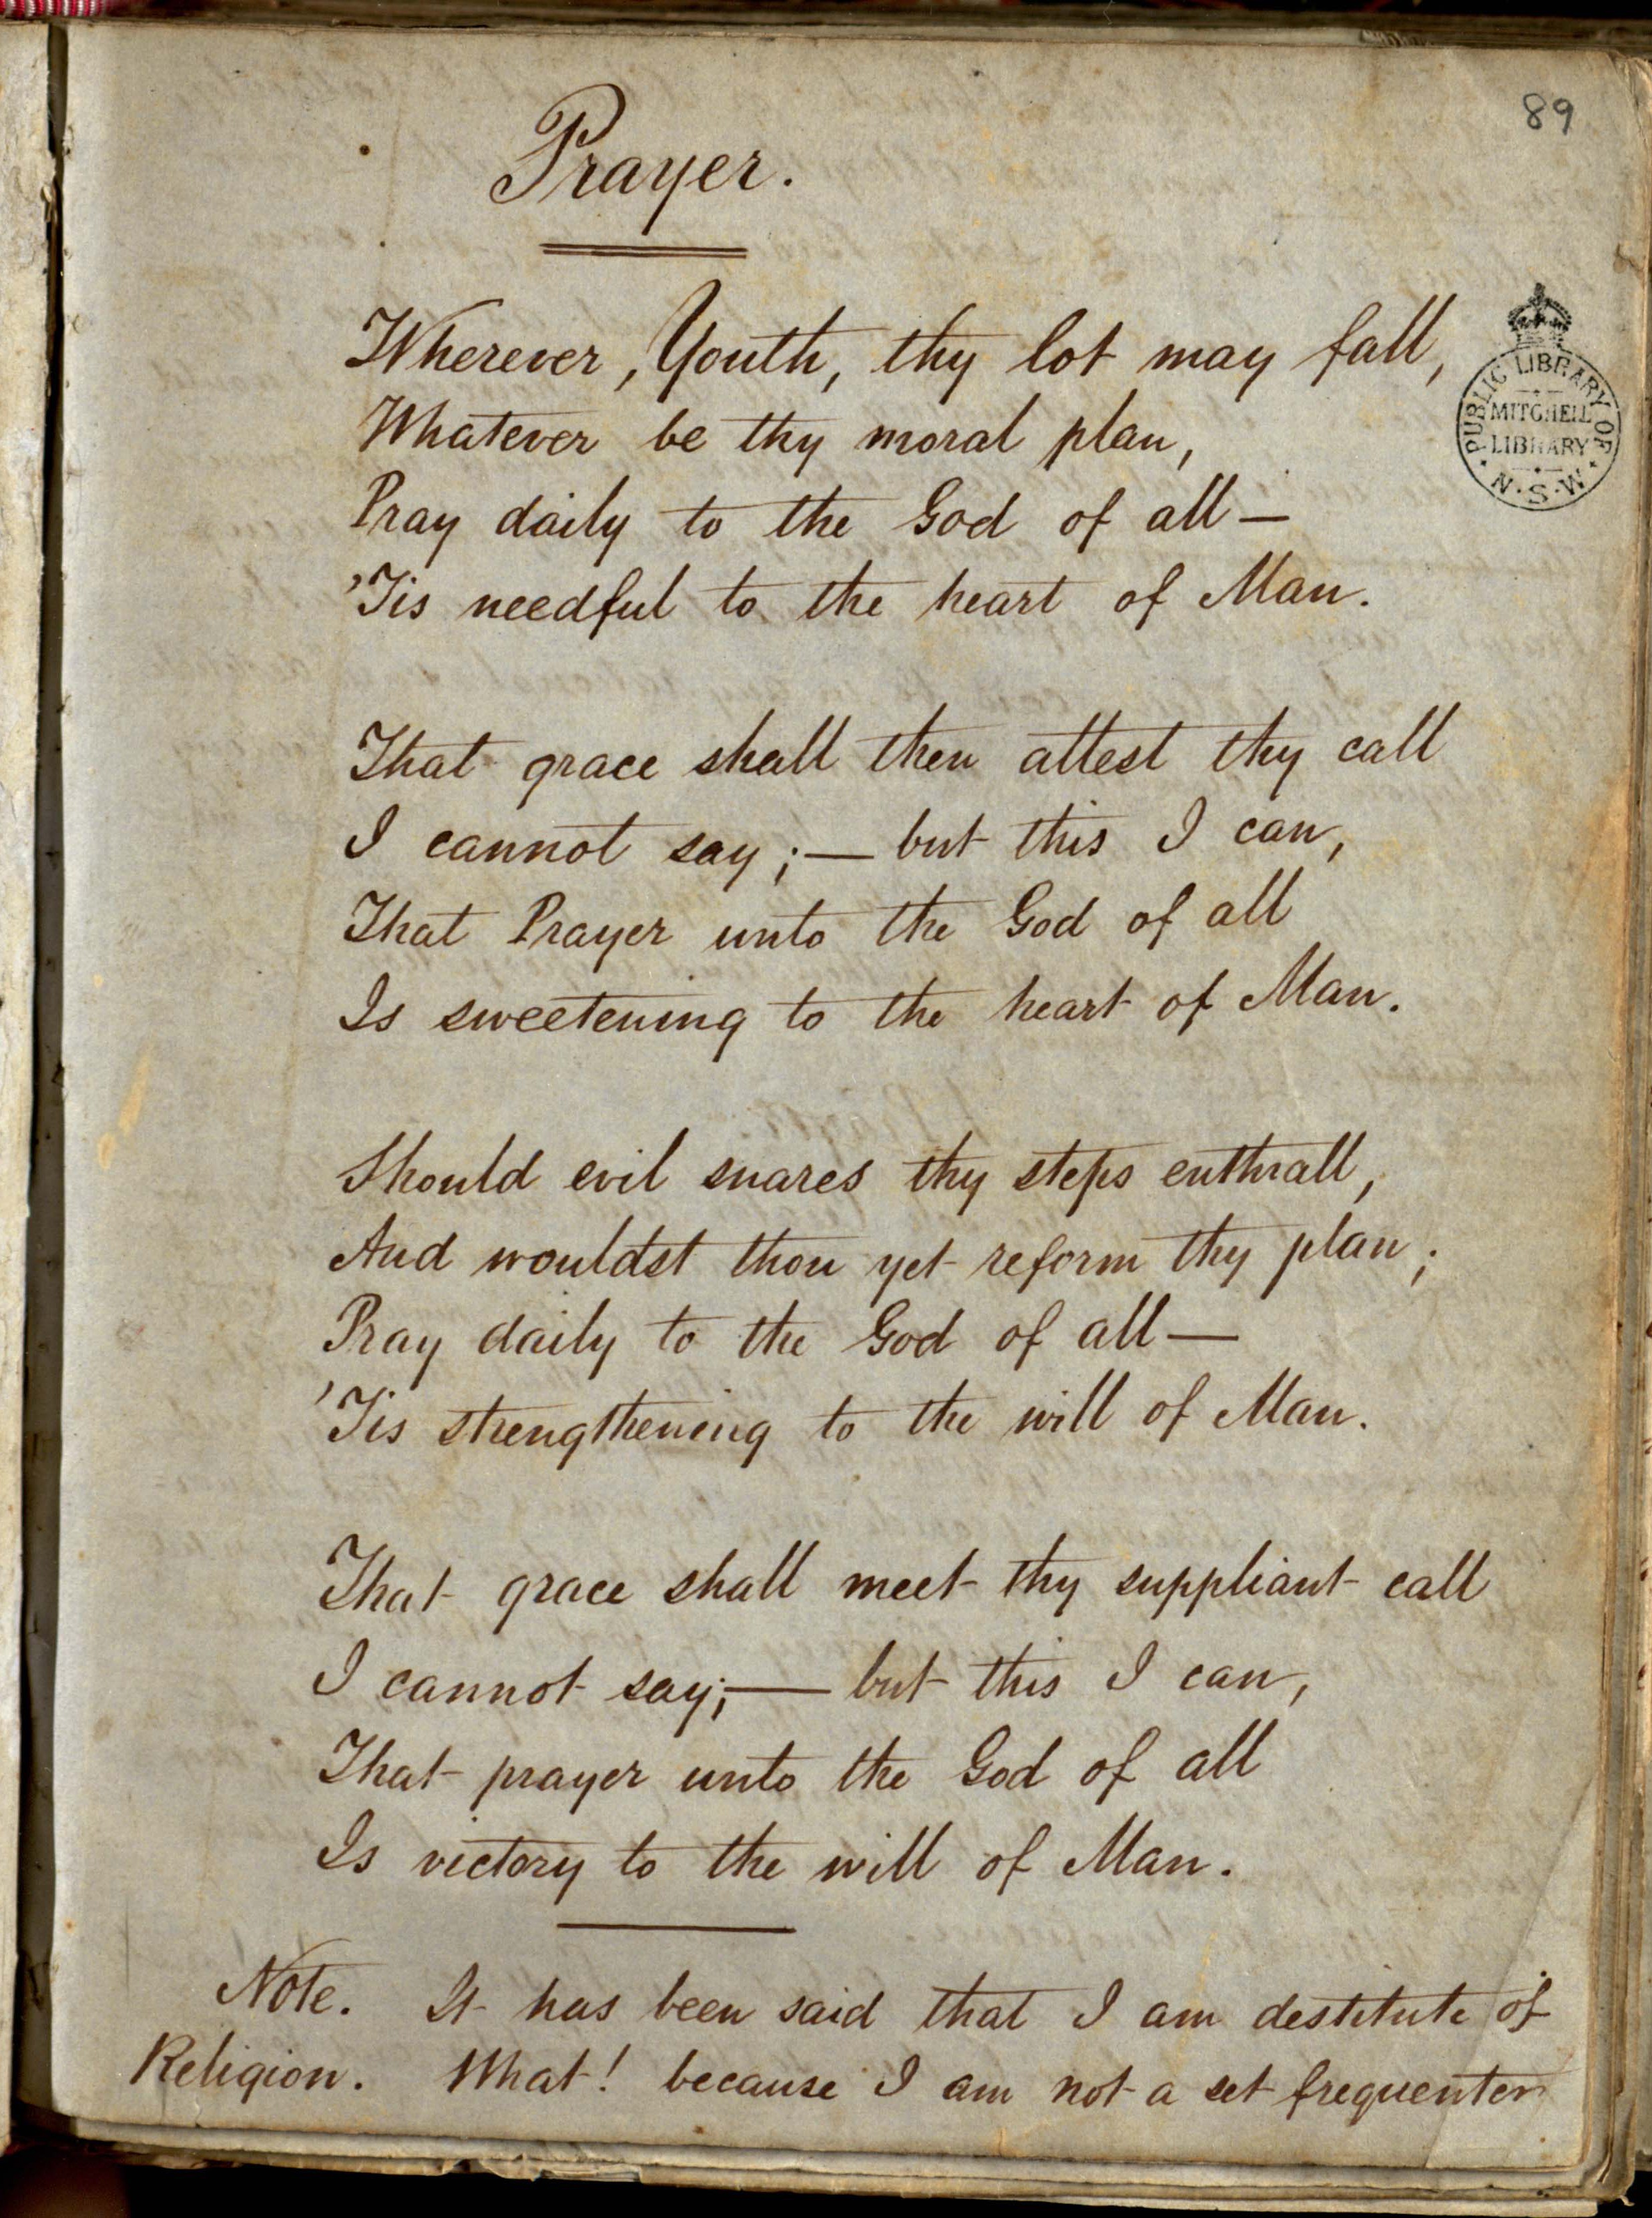 89
Prayer.
Wherever, Youth, thy lot may fall,
Whatever be thy moral plan,
Pray daily to the God of all —
'Tis needful to the heart of Man.
That grace shall then attest thy call
I cannot say; — but this I can,
That Prayer unto the God of all
Is sweetening to the heart of Man.
Should evil snares thy steps enthrall,
And wouldst thou yet reform thy plan;
Pray daily to the God of all —
'Tis strengthening to the will of Man.
That grace shall meet thy suppliant call
I cannot say; — but this I can,
That prayer unto the God of all
Is victory to the will of Man.
Note. It has been said that I am destitute of
Religion. What! because I am not a set frequenter
PUBLIC LIBRARY OF
MITCHELL
LIBRARY
N.S.W